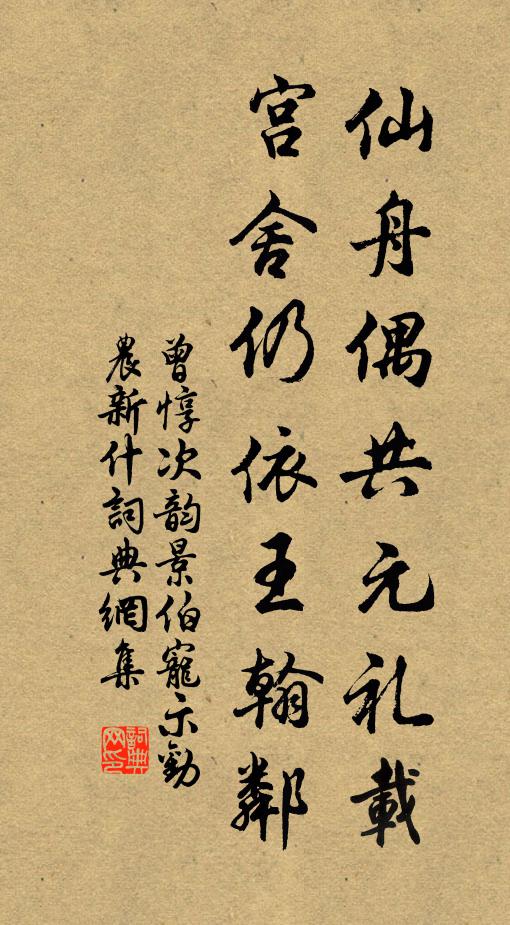 仙舟偶共元礼載
宫舍仍依王翰鄰
曾惇次韵景伯寵示勸
農新什詞典網集
詞典网印